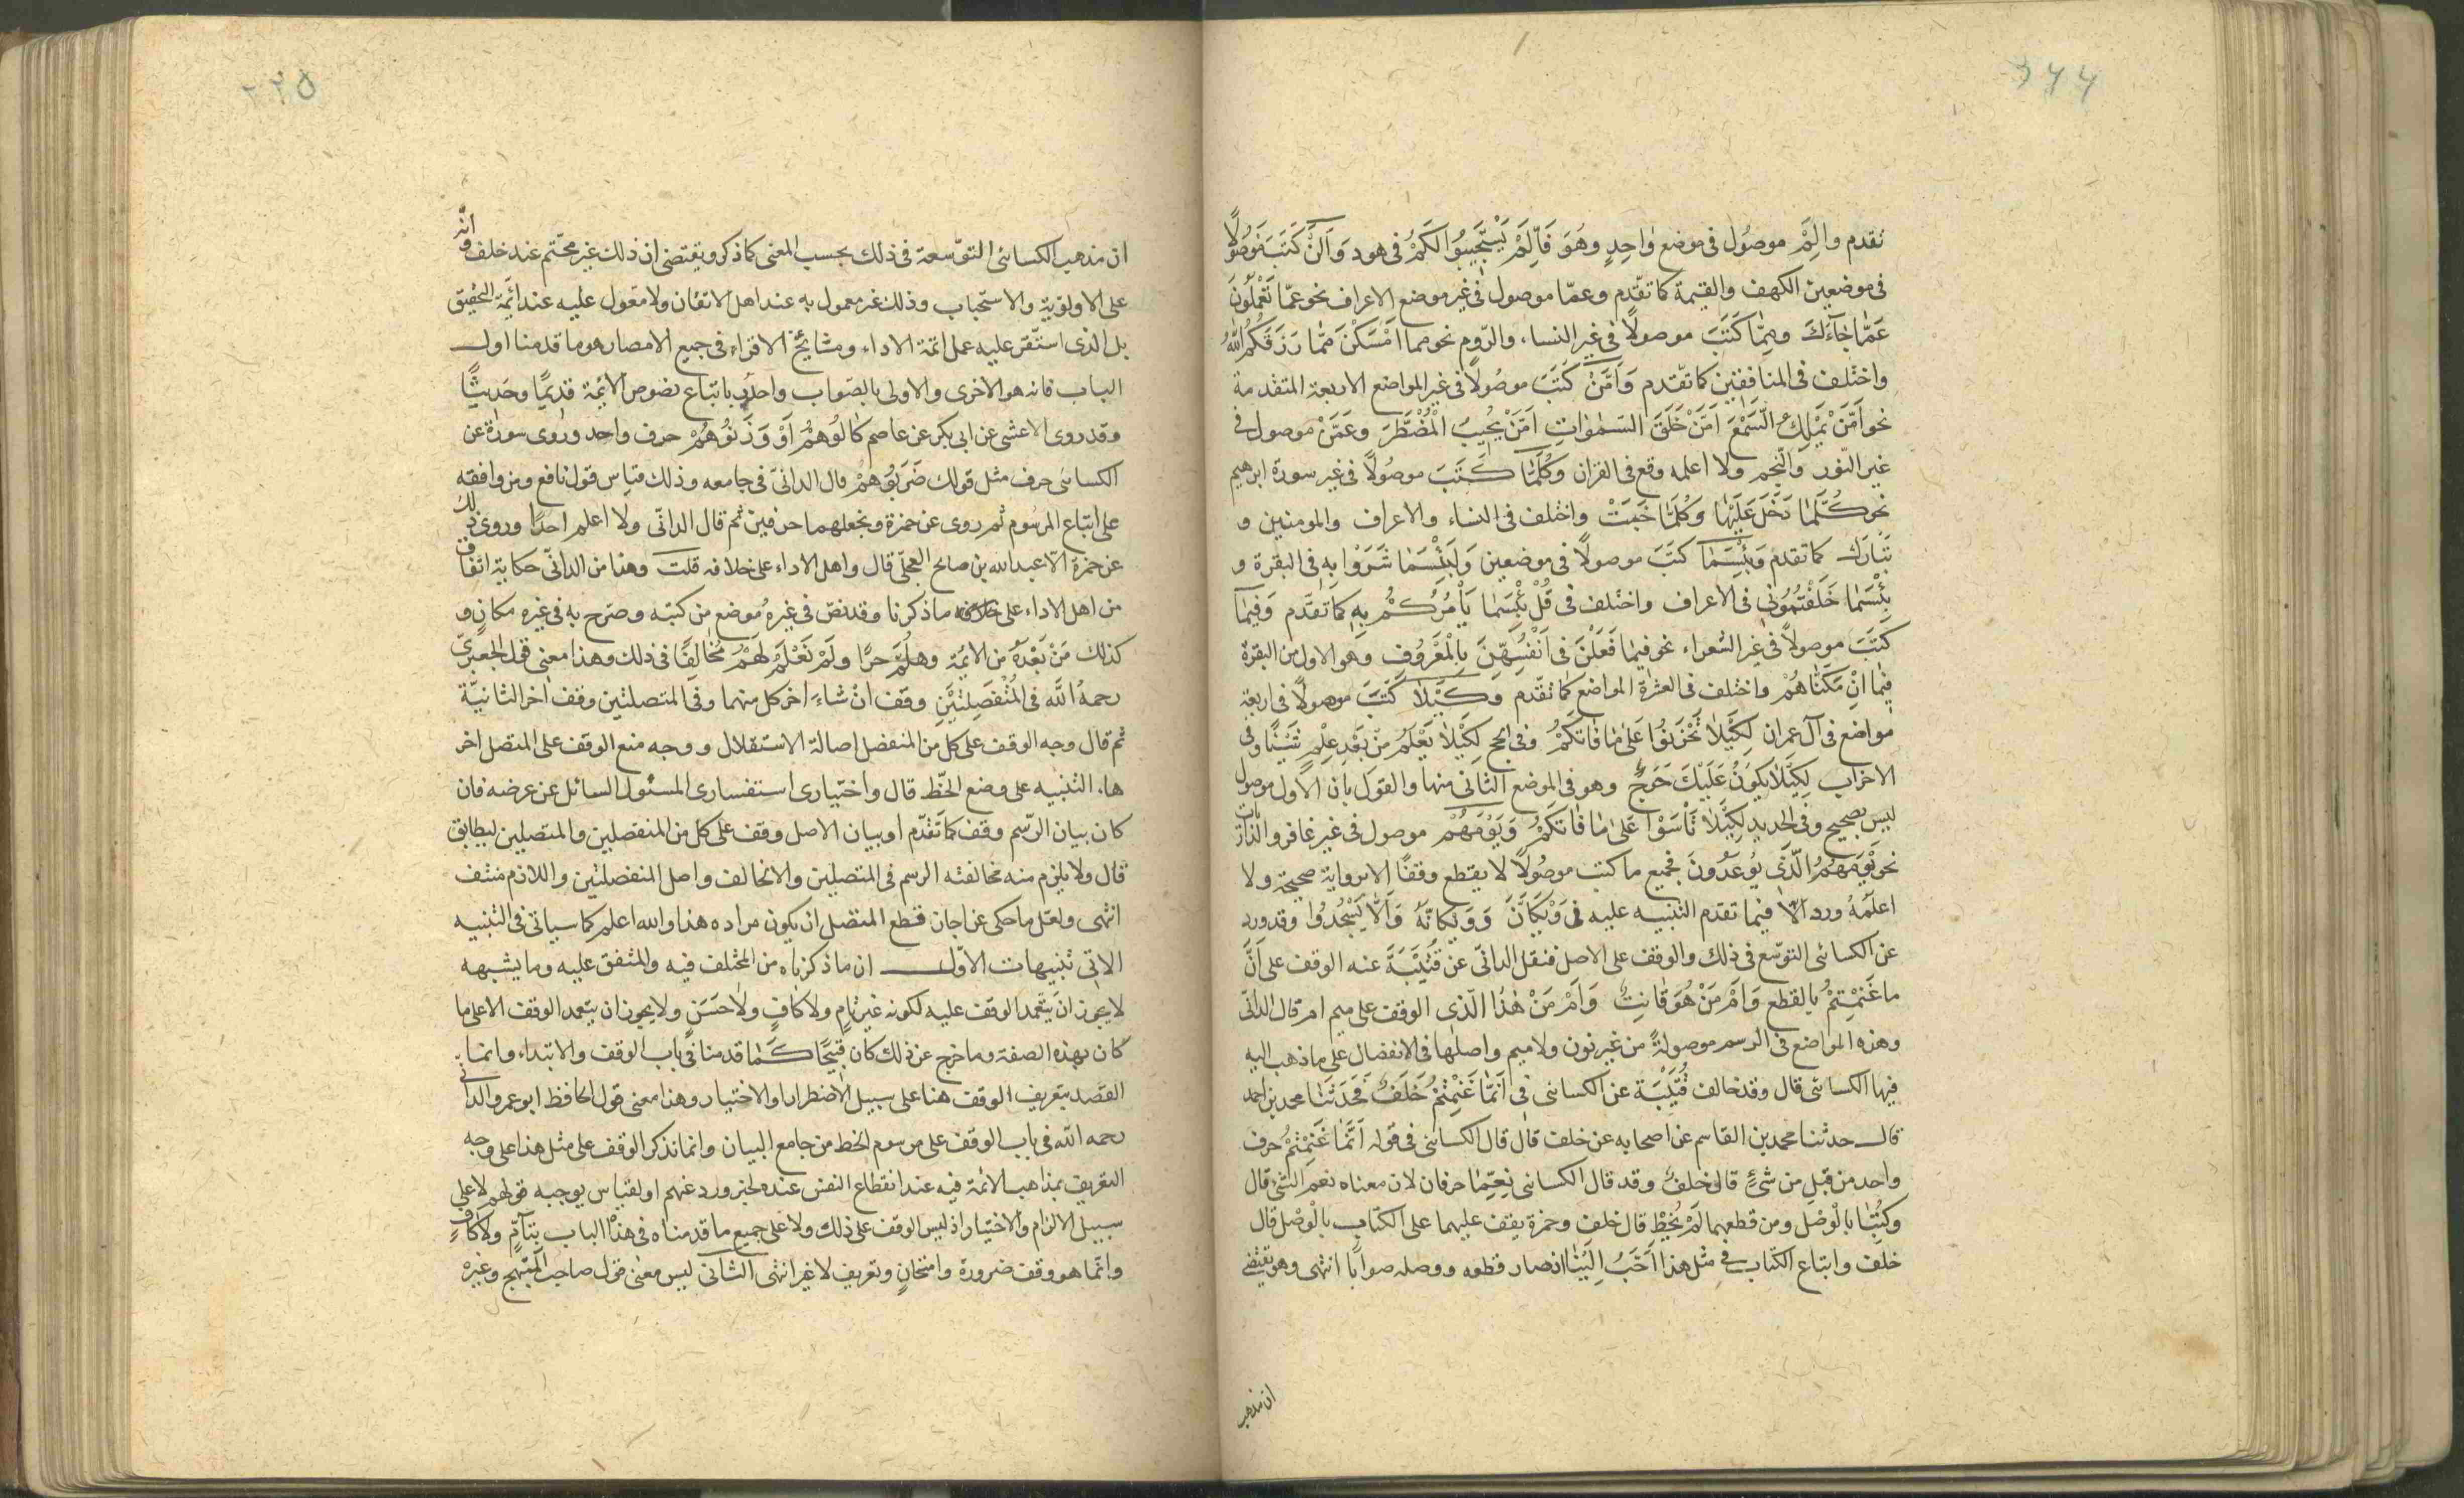 تقدم وَالَّمْ موصُول فى موضع وَاحِدٍ وهُوَ فَاِلَّمْ يَسْتَجِيبُوا لَكُمْ فى هود وَاَلَّنْ كَتَبَ مَوْصُولًا
فى موضعين الكهف والقيمة كما تقدّم وعمّا موصول فى غير موضع الاعراف نحو عَمَّا تَعْمَلُونَ
عَمَّا جَآءَكَ وَمِمَّا كَتَبَ موصولًا فى غير النساء والرّوم نحو مما اَمْسَكْنَ مِمَّا رَزَقَكُمُ اللّٰهُ
واختلف فى المنافقين كما تقدم وَاَمَّنْ كَتَبَ موصُولًا فى غير المواضع الاربعة المتقدمة
نحو اَمَّنْ يَمْلِكُ السَّمْعَ اَمَّنْ خَلَقَ السَّمٰوَاتِ اَمَّنْ يُجِيبُ الْمُضْطَرَّ وعَمَّنْ موصول فى
غير النّور والنّجم ولا اعلمه وقع فى القرآن وكُلَّمَا كَتَبَ موصُولًا فى غير سورة ابرهيم
نحو كُلَّمَا دَخَلَ عَلَيْهَا وَكُلَّمَا خَبَتْ واختلف فى النساء والاعراف والمومنين و
تَبَارَكَ كما تقدم وَبِئْسَمَا كتَبَ موصولًا فى موضعين وَلَبِئْسَمَا شَرَوْا بِهِ فى البقرة و
بِئْسَمَا خَلَفْتُمُونِى فى الاعراف واختلف فى قُلْ بِئْسَمَا يَأْمُرُكُمْ بِهِ كما تقَدَّم وَفِيمَا
كَتَبَ موصولًا فى غير الشعراء نحو فيما فَعَلْنَ فى اَنْفُسِهِنَّ بِالْمَعْرُوفِ وهو الاول من البقرة
فِيمَا اِنْ مَكَّنَّاهُمْ واختلف فى العشرة المواضع كما تقدّم وَكَيْلَا كَتَبَ موصولًا فى اربعة
مواضع فى آل عمران لِكَيْلَا تَحْزَنُوا عَلَى مَا فَاتَكُمْ وفى الحج لِكَيْلَا يَعْلَمَ مِنْ بَعْدِ عِلْمٍ شَيْئًا وفى
الاحزاب لِكَيْلَا يَكُونَ عَلَيْكَ حَرَجٌ وهو فى الموضع الثانى منها والقول بان الاول موصول
ليس بصحيح وفى الحديد لِكَيْلَا تَأْسَوْا عَلَى مَا فَاتَكُمْ وَيَوْمَهُمْ موصول فى غير غافر والذاريات
نحو يَوْمَهُمُ الَّذِى يُوعَدُونَ فجميع ما كتب موصُولًا لا يقطع وقفًا الا برواية صحيحة ولا
اعلمَهُ ورد الا فيما تقدم التنبيه عليه فى وَيْكَاَنَّ وَوَيْكَاَنَّهُ وَاَلَّا يَسْجُدُوا وقد ورد
عن الكسائى التوسّع فى ذلك والوقف على الاصل فنقل الدانى عن قُتَيْبَةَ عنه الوقف على اَنَّ
ما غَنِمْتُمْ بالقطع وَاَمْ مَنْ هُوَ قَانِتٌ وَاَمْ مَنْ هٰذَا الّذى الوقف على ميم ام قال الدانى
وهذه المواضع فى الرسم موصولةً من غير نون ولا ميم واصلها فى الانفصال على ما ذهب اليه
فيها الكسائى قال وقد خالف قُتَيْبَة عن الكسائى فى اَنَّمَا غَنِمْتُمْ خَلَفٌ فَحَدَّثَنَا محمد بن احمد
قال حدثنا محمد بن القاسم عن اصحابه عن خلف قال قال الكسائى فى قوله اَنَّمَا غَنِمْتُمْ حرف
واحد من قبل من شىءٍ قال خلفٌ وقد قال الكسائى نِعِمَّا حرفان لان معناه نعم الشئ قال
وكُتِبَا بالْوَصْل ومن قطعهما لَمْ يُخْطِ قال خلف وحمزة يقف عليهما على الكتاب بالْوصْل قال
خلف واتباع الكتاب فى مثل هذا اَحَبُّ اِلَيْنَا اذ صار قطعه ووصله صوابًا انتهى وهو يقتضى
ان مذهب
٢٢٥
ان مذهب الكسائى التوّسعة فى ذلك بحسب المعنى كما ذكر ويقتضى ان ذلك غير محّتم عند خلف وانّه
على الاولوية والاستحباب وذلك غير معمول به عند اهل الاتقان ولا معول عليه عند ائمّة التحقيق
بل الذى استقّر عليه عمل ائمّة الاداء ومشائخ الاقراء فى جميع الامصار هو ما قدمنا اول
الباب فانه هو الاحرى والاولى بالصّواب واجدر باتباع نصوص الائمة قديمًا وحَديثًا
وقد روى الاعشى عن ابى بكر عن عاصم كَالُوهُمْ اَوْ وَزَنُوهُمْ حرف واحد وروى سورة عن
الكسائى حرف مثل قولك ضَرَبُوهُمْ قال الدانىّ فى جامعه وذلك قياس قول نافع ومن وافقه
على اتباع المرسُوم ثم روى عن حمزة ويجعلهما حرفين ثم قال الدانى ولا اعلم احدًا وروى ذلك
عن حمزة الا عبد الله بن صالح العجلّى قال واهل الاداء على خلافه قلت وهذا من الدانىّ حكاية اتفاق
من اهل الاداء على ما ذكرنا وقد نصّ فى غيره موضع من كتبه وصرّح به فى غيره مكانٍ و
كذلك مَنْ بَعْدَهُ من الائمة وهلُمَّ جرّا ولَمْ نَعْلَمْ لَهُمْ مُخَالِفًا فى ذلك وهذا معنى قول الجعبرىّ
رحمهُ اللّٰه فى المُنْفَصِلَتَيْنِ وقف ان شاءَ اخر كل منهما وفى المتصلتين وقف اخر الثانيّة
ثم قال وجه الوقف على كل من المنفصل اصالة الاستقلال ووجه منع الوقف على المتصل اخر
ها، التنبيه على وضع الخّط قال واختيارى استفسارى المسئول السائل عن غرضه فان
كان بيان الرّسم وقف كما تَقدّم او بيان الاصل وقف على كل من المنفصلين والمتصلين ليطابق
قال ولا يلزم منه مخالفته الرسم فى المتصلين والا لخالف واصل المنفصلتين واللازم منتف
انتهى ولعّل ما حكى عن اجاز قطع المتصل ان يكون مراده هذا والله اعلم كما سياتى فى التنبيه
الاتى تنبيهات الاوّل ان ما ذكرناه من المختلف فيه والمتفق عليه وما يشبهه
لا يجوز انْ يتعّمد الوقف عليه لكونه غير تامٍ ولا كافٍ ولا حَسَنٍ ولا يجوز ان يتعمد الوقف الا على ما
كان بهذه الصفة وما خرج عن ذلك كان قبيحًا كما قدمنا فى باب الوقف والابتداء وانما
القصد بتعريف الوقف هنا على سبيل الاضطرار او الاختيار وهذا معنى قول الحافظ ابو عمرو الدانى
رحمه الله فى باب الوقف على مرسوم الخط من جامع البيان وانما نذكر الوقف على مثل هذا على وجه
التعريف بمذاهب الائمة فيه عند انقطاع النفس عنده لخبر ورد عنهم او لقياس يوجبه قولهم لا على
سبيل الالزام والاختيار اذ ليس الوقف على ذلك ولا على جميع ما قدمناه فى هذا الباب بتآمّ ولا كافٍ
وانّما هو وقف ضرورة وامتحانٍ وتعريف لا غير انتهى الثانى ليس معنى قول صاحب المبهج وغيره